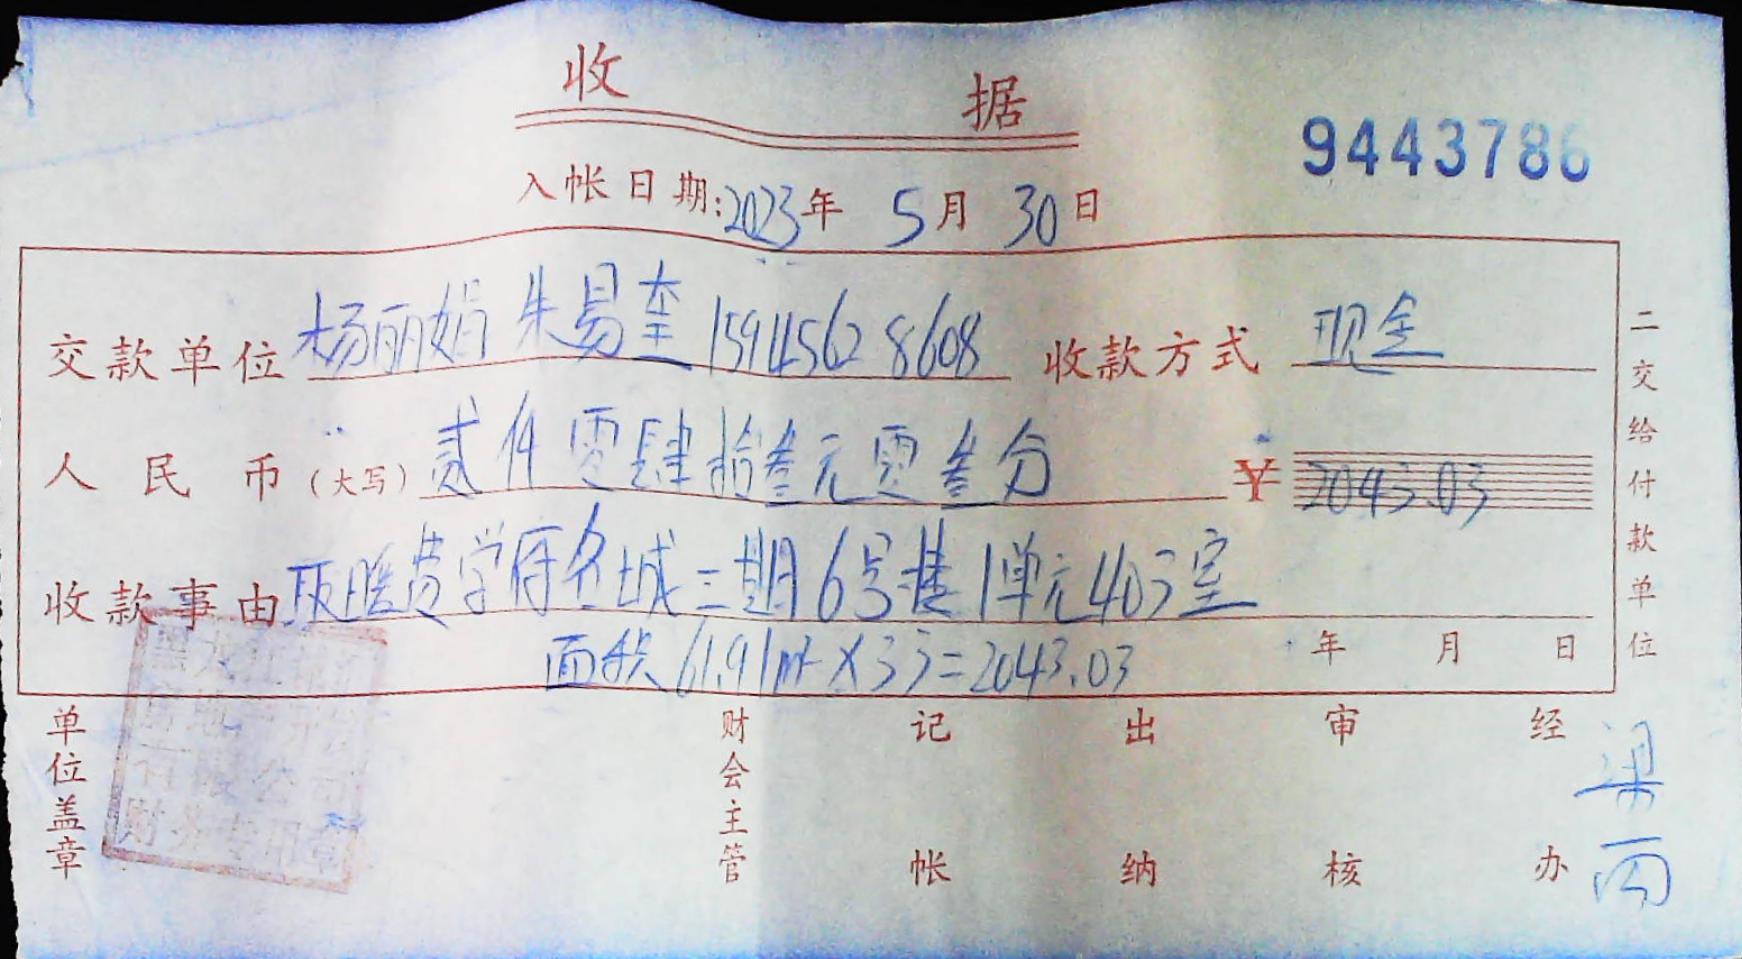 收 据
9443786
入帐日期:2023年 5月 30日
交款单位 杨丽娟 朱易奎 15945628608 收款方式 现金
人民币(大写) 贰仟零肆拾叁元零叁分 ¥ 2043.03
收款事由 取暖费学府名城三期6号楼1单元403室
面积61.91m²×33=2043.03 年 月 日
二交给付款单位
单位盖章 财会主管 记帐 出纳 审核 经办 梁
黑龙江
房地产开发
有限公司
财务专用章